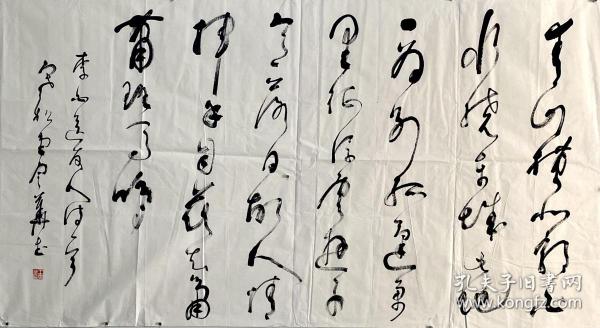 青山横北郭白
水绕东城此地
一为别孤蓬万
里征浮云游子
意落日故人情
挥手自兹去萧
萧班马鸣
李白送友人诗一首
孔夫子旧书网
www.kongfz.com